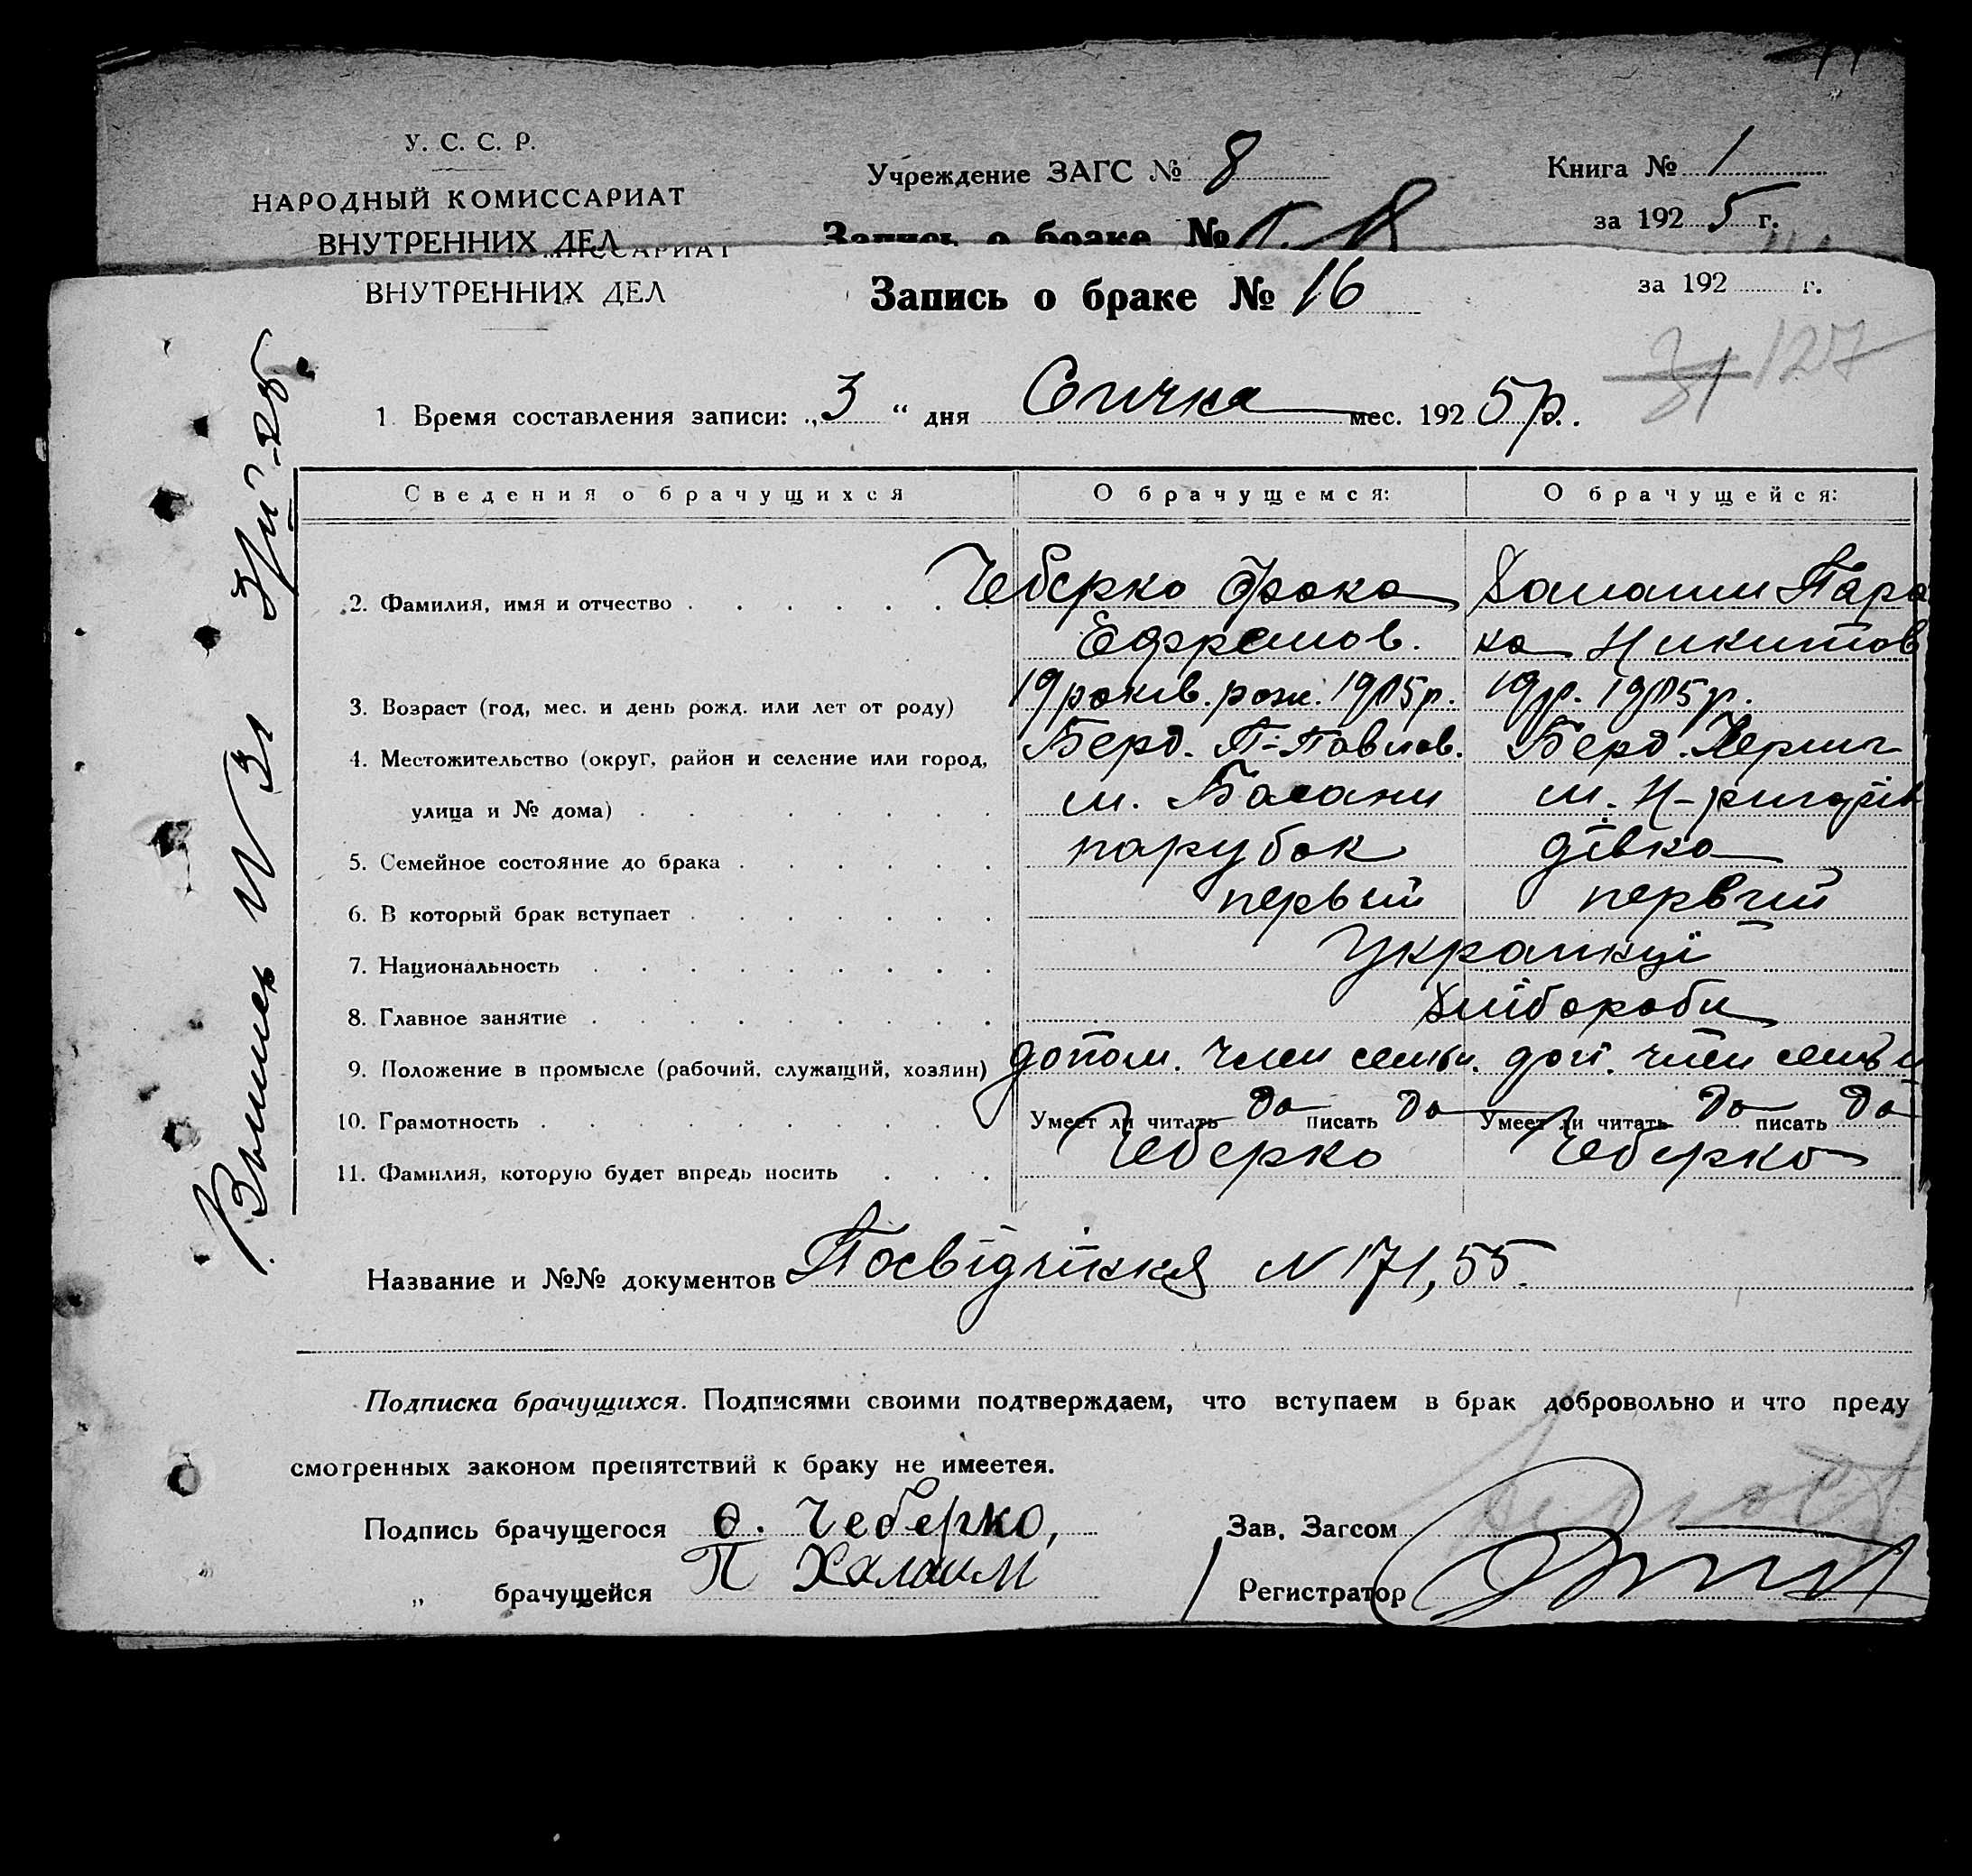 У. С. С. Р.
НАРОДНЫЙ КОМИССАРИАТ
ВНУТРЕННИХ ДЕЛ
Учреждение ЗАГС № 8
Книга № 1
за 1925 г.
Запись о браке №
ВНУТРЕННИХ ДЕЛ
Запись о браке № 16
за 192 г.
31 127
1. Время составления записи: „3“ дня Сичня мес. 1925 р.
Сведения о брачущихся О брачущемся: О брачущейся:
2. Фамилия, имя и отчество Чеберко Фока
Ефремов.
Пара
ка Никитов
3. Возраст (год, мес. и день рожд. или лет от роду) 19 років. рож. 1905 р. 19 р. 1905 р.
4. Местожительство (округ, район и селение или город, Берд. П-Павлов. Берд.
улица и № дома) м.
5. Семейное состояние до брака парубок дівка
6. В который брак вступает первый первий
7. Национальность Украинці
8. Главное занятие Хліборобы
9. Положение в промысле (рабочий, служащий, хозяин) допом. член семьи. доп. член семьи
10. Грамотность Умеет ли читать да писать да Умеет ли читать да писать да
11. Фамилия, которую будет впредь носить Чеберко Чеберко
Название и №№ документов Посвідчіння N 171, 55.
Подписка брачущихся. Подписями своими подтверждаем, что вступаем в брак добровольно и что преду
смотренных законом препятствий к браку не имеетея.
Подпись брачущегося Ф. Чеберко,
Зав. Загсом
„ брачущейся П Халаим
Регистратор
Выпись N 31 3/I-25